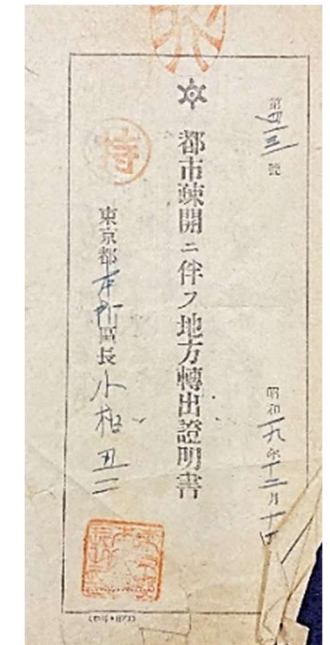 第四一三號
昭和一九年十二月十日
都市疎開ニ伴フ地方轉出證明書
東京都本所區長